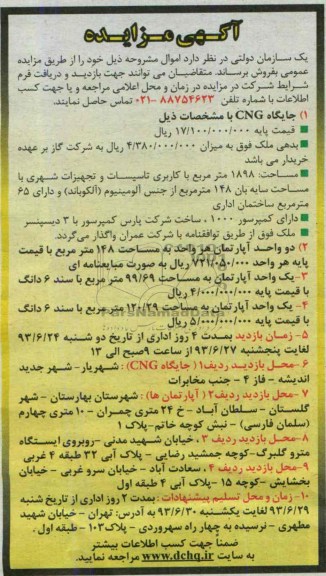 آگهی مزایده
یک سازمان دولتی در نظر دارد اموال مشروحه ذیل خود را از طریق مزایده
عمومی بفروش برساند. متقاضیان می توانند جهت بازدید و دریافت فرم
شرایط شرکت در مزایده در زمان و محل اعلامی مراجعه و یا جهت کسب
اطلاعات با شماره تلفن ۸۸۷۵۴۶۲۳ -۰۲۱ تماس حاصل نمایند.
۱) جایگاه CNG با مشخصات ذیل
قیمت پایه ۱۷/۱۰۰/۰۰۰/۰۰۰ ریال
بدهی ملک فوق به میزان ۴/۳۸۰/۰۰۰/۰۰۰ ریال به شرکت گاز بر عهده
خریدار می باشد
مساحت: ۱۸۹۸ متر مربع با کاربری تاسیسات و تجهیزات شهری با
مساحت سایه بان ۱۴۸ مترمربع از جنس آلومینیوم (آلکوباند) و دارای ۶۵
مترمربع ساختمان اداری
دارای کمپرسور ۱۰۰۰ ، ساخت شرکت پارس کمپرسور با ۳ دیسپنسر
ملک فوق از طریق توافقنامه با شرکت عمران واگذار می‌گردد.
۲) دو واحد آپارتمان هر واحد به مساحت ۱۴۸ متر مربع با قیمت
پایه هر واحد ۷۲۱/۰۵۰/۰۰۰ ریال به صورت مبایعنامه ای
۳-یک واحد آپارتمان به مساحت ۹۹/۶۹ متر مربع با سند ۶ دانگ
با قیمت پایه ۴/۰۰۰/۰۰۰/۰۰۰ ریال
۴- یک واحد آپارتمان به مساحت ۱۲۰/۲۹ متر مربع با سند ۶ دانگ
با قیمت پایه ۵/۰۰۰/۰۰۰/۰۰۰ ریال
۵- زمان بازدید بمدت ۴ روز اداری از تاریخ دو شنبه ۹۳/۶/۲۴
لغایت پنجشنبه ۹۳/۶/۲۷ از ساعت ۹صبح الی ۱۳
۶-محل بازدید ردیف۱ ( جایگاه CNG) : شهریار- شهر جدید
اندیشه - فاز ۴ - جنب مخابرات
۷-محل بازدید ردیف۲ ( آپارتمان ها) : شهرستان بهارستان - شهر
گلستان - سلطان آباد - خ ۲۴ متری چمران - ۱۰ متری چهارم
(سلمان فارسی) - نبش کوچه خاتم-پلاک ۱
۸-محل بازدید ردیف ۳ ، خیابان شهید مدنی -روبروی ایستگاه
مترو گلبرگ -کوچه جمشید رضایی - پلاک آبی ۳۲ طبقه ۴ غربی
۹-محل بازدید ردیف ۴ ، سعادت آباد - خیابان سرو غربی - خیابان
بخشایش -کوچه ۱۵ -پلاک آبی ۴ طبقه اول
۱۰- زمان و محل تسلیم پیشنهادات : بمدت ۲ روز اداری از تاریخ شنبه
۹۳/۶/۲۹ لغایت یکشنبه ۹۳/۶/۳۰ به آدرس: تهران - خیابان شهید
مطهری - نرسیده به چهار راه سهروردی - پلاک۱۰۳ - طبقه اول .
ضمناً جهت کسب اطلاعات بیشتر
به سایت www.dchq.ir مراجعه نمایید.